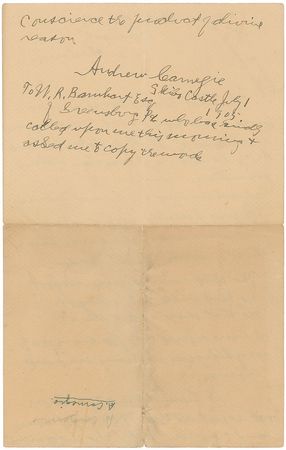 Conscience the product of divine
reason
Andrew Carnegie
Skibo Castle, July 1
1905
To W. R. Barnhart Esq
of Greensburg Pa who has kindly
called upon me this morning &
asked me to copy the words
A. Carnegie